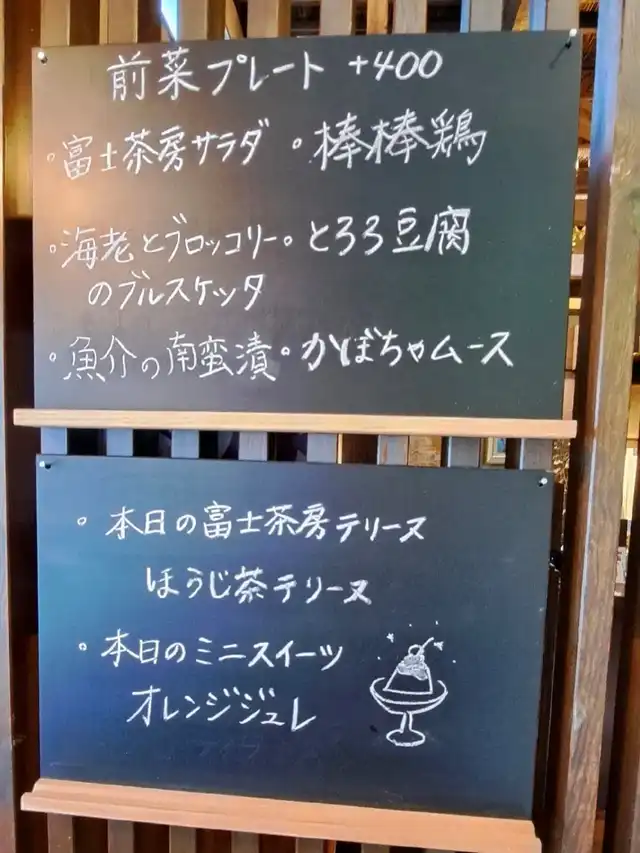 前菜プレート +400
・富士茶房サラダ ・棒棒鶏
・海老とブロッコリー ・とろろ豆腐
のブルスケッタ
・魚介の南蛮漬 ・かぼちゃムース
・本日の富士茶房テリーヌ
ほうじ茶テリーヌ
・本日のミニスイーツ
オレンジジュレ